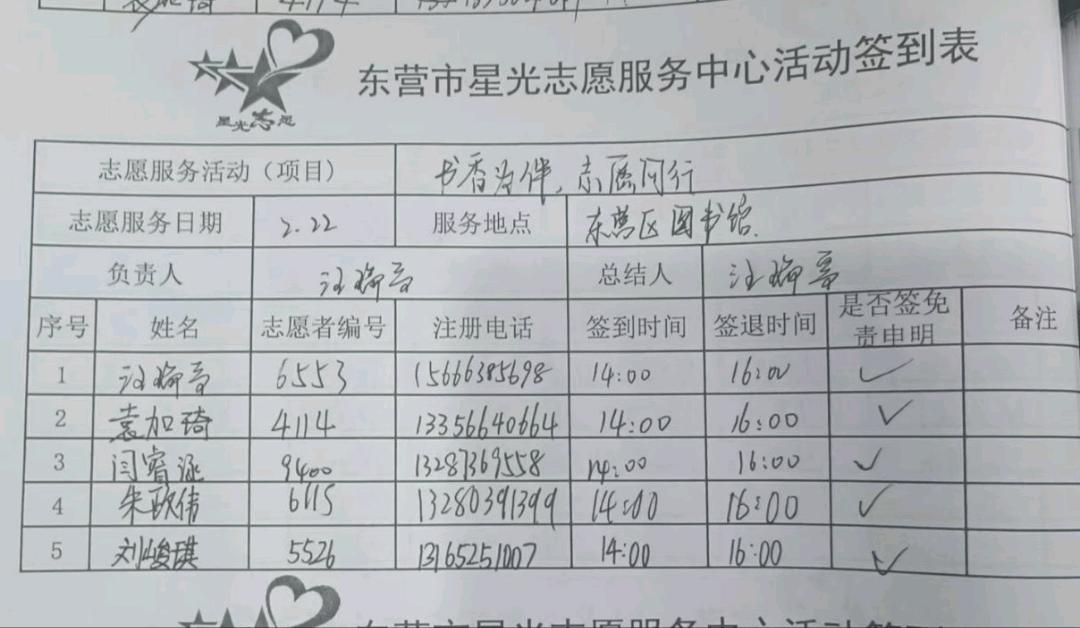 星光志愿
东营市星光志愿服务中心活动签到表
志愿服务活动（项目） 书香为伴，志愿同行
志愿服务日期 2.22 服务地点 东营区图书馆.
负责人 总结人
序号 姓名 志愿者编号 注册电话 签到时间 签退时间 是否签免责申明 备注
1 6553 15666385698 14:00 16:00 ✓
2 袁加琦 4114 13356640664 14:00 16:00 ✓
3 闫睿涵 9400 13287369558 14:00 16:00 ✓
4 朱歌伟 6115 13280391399 14:00 16:00 ✓
5 刘峻琪 5526 13165251007 14:00 16:00 ✓
东营市星光志愿服务中心活动签到